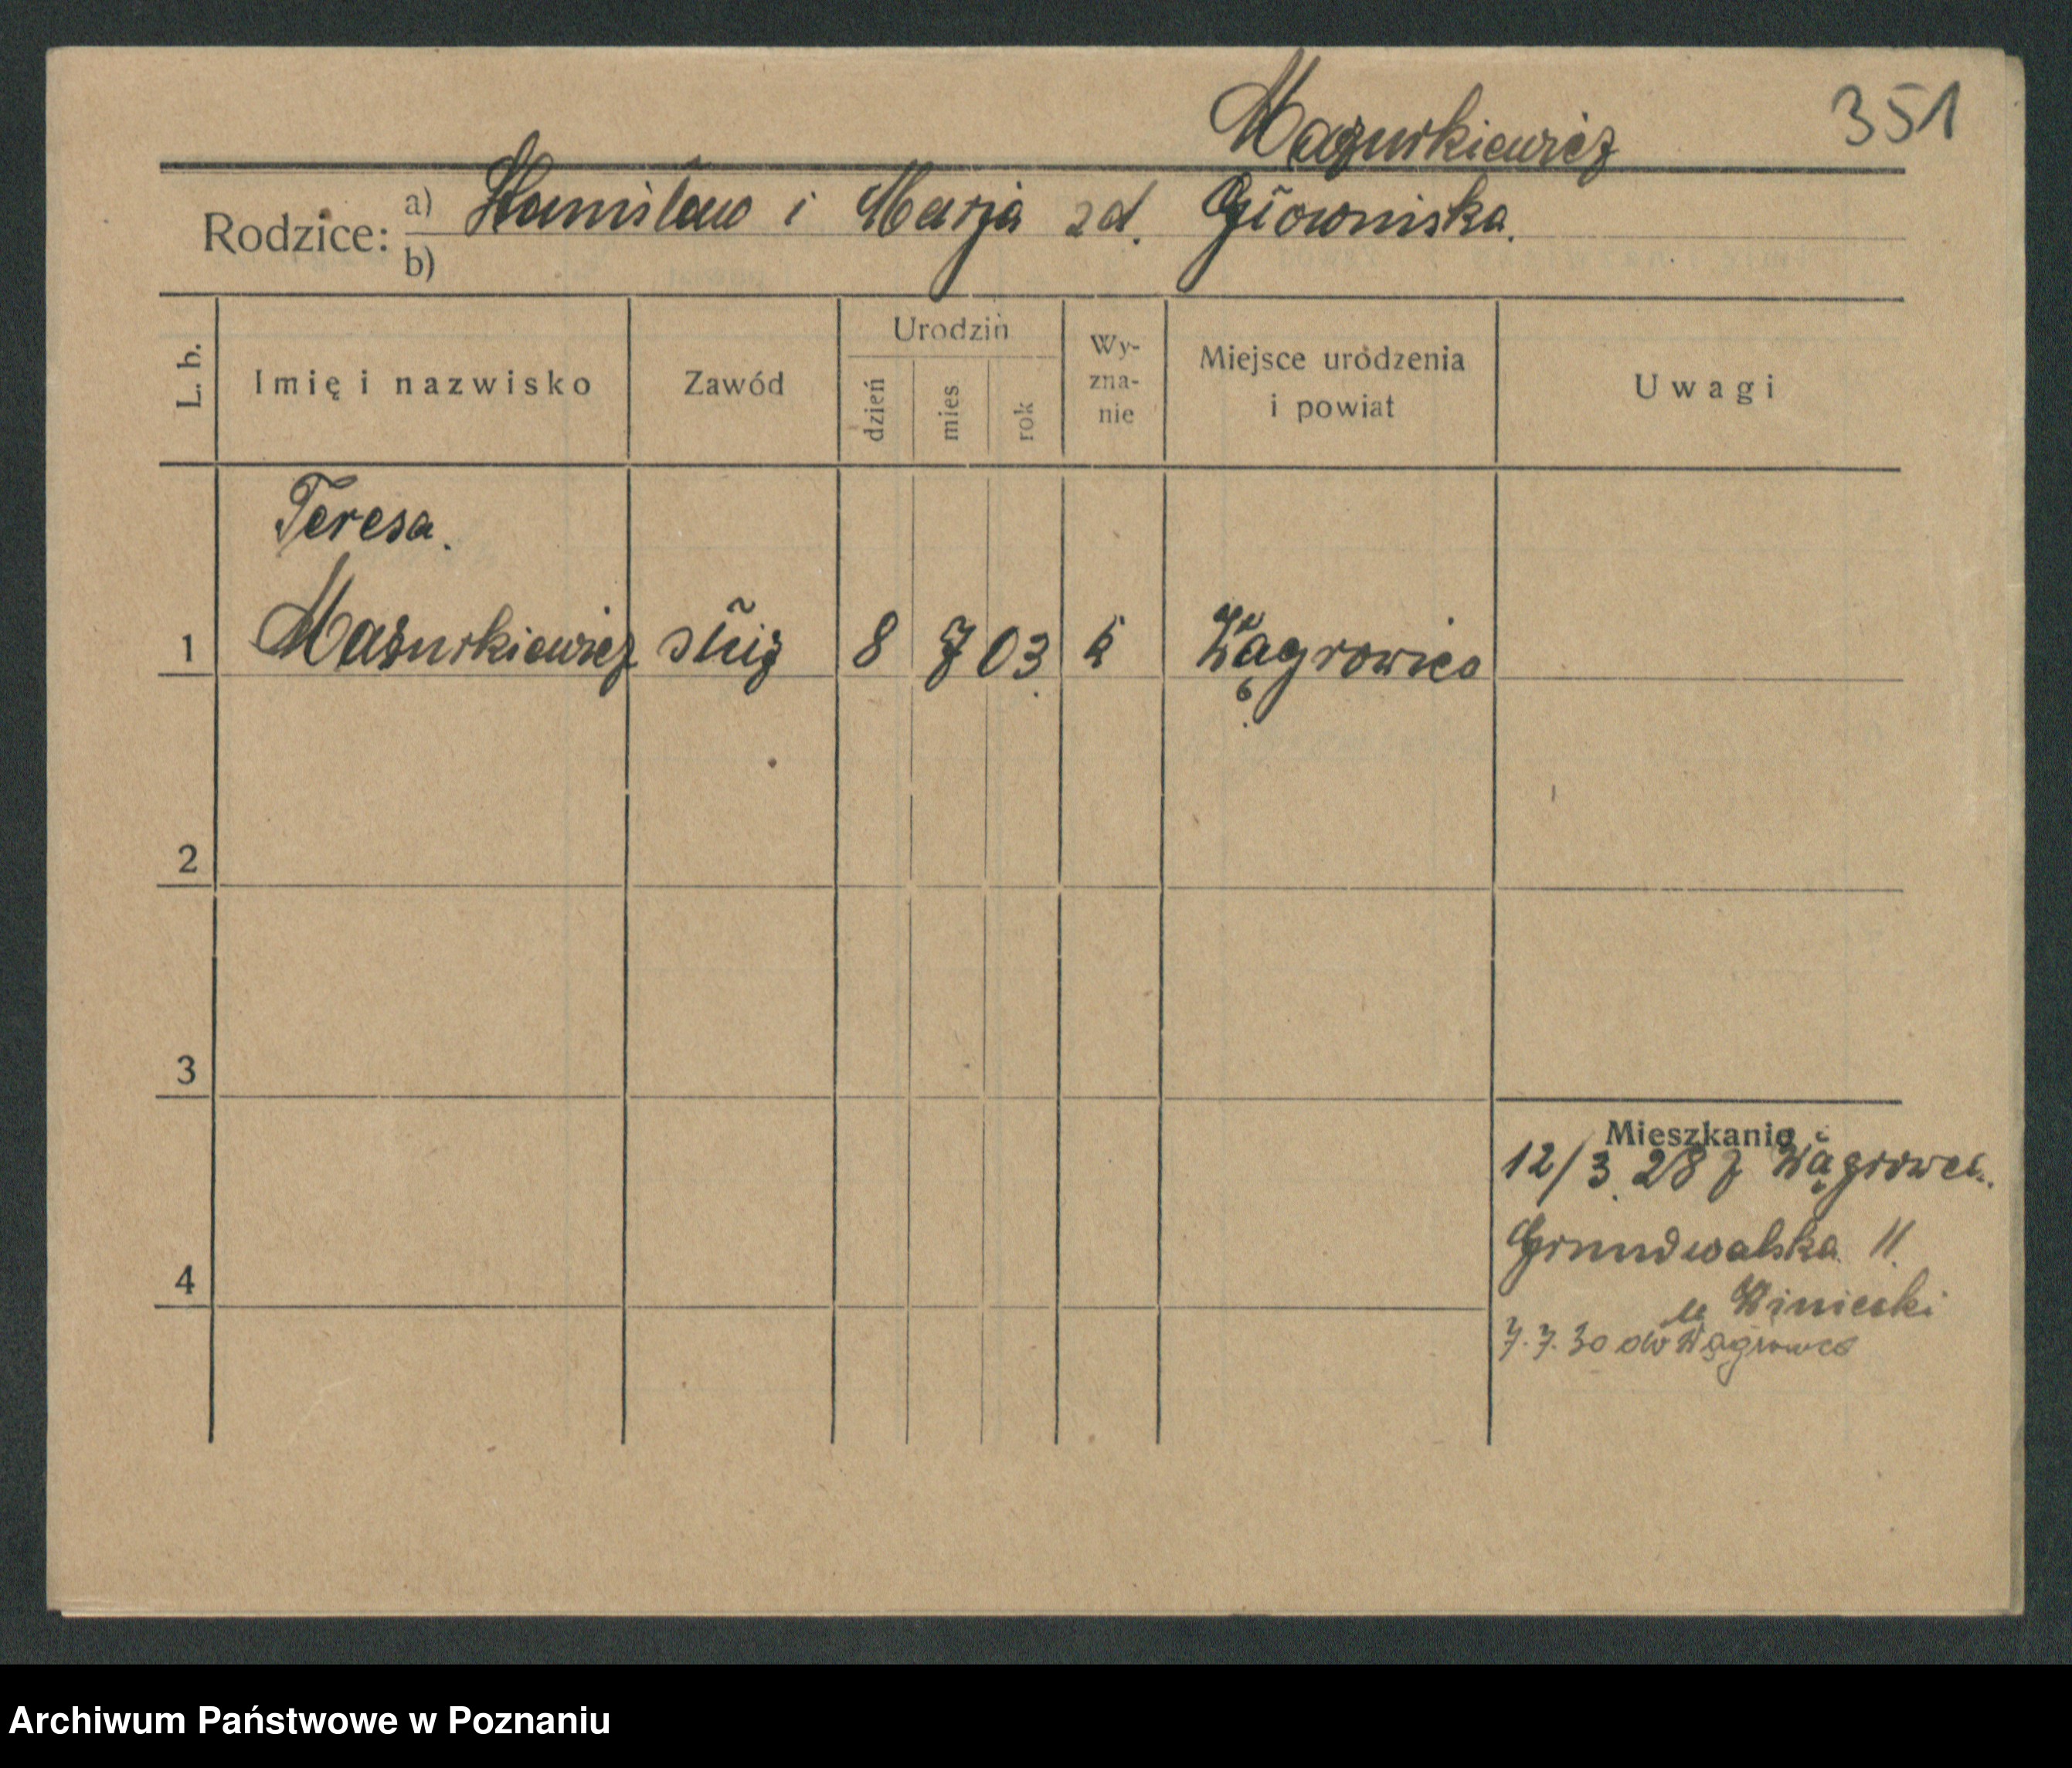 351
Mazurkiewicz
Rodzice: a) Stanisław i Marja zd. Głowniska.
b)
L. b.
Imię i nazwisko
Zawód
Urodzin
dzień
mies
rok
Wy-
zna-
nie
Miejsce urodzenia
i powiat
Uwagi
Teresa.
1 Mazurkiewicz służ 8 7 03 k Wągrowiec
2
3
Mieszkanie
12/3 28 z Wągrowca.
Grundwalska 11.
4
u Winiecki
7.7.30 do Wągrowca
Archiwum Państwowe w Poznaniu